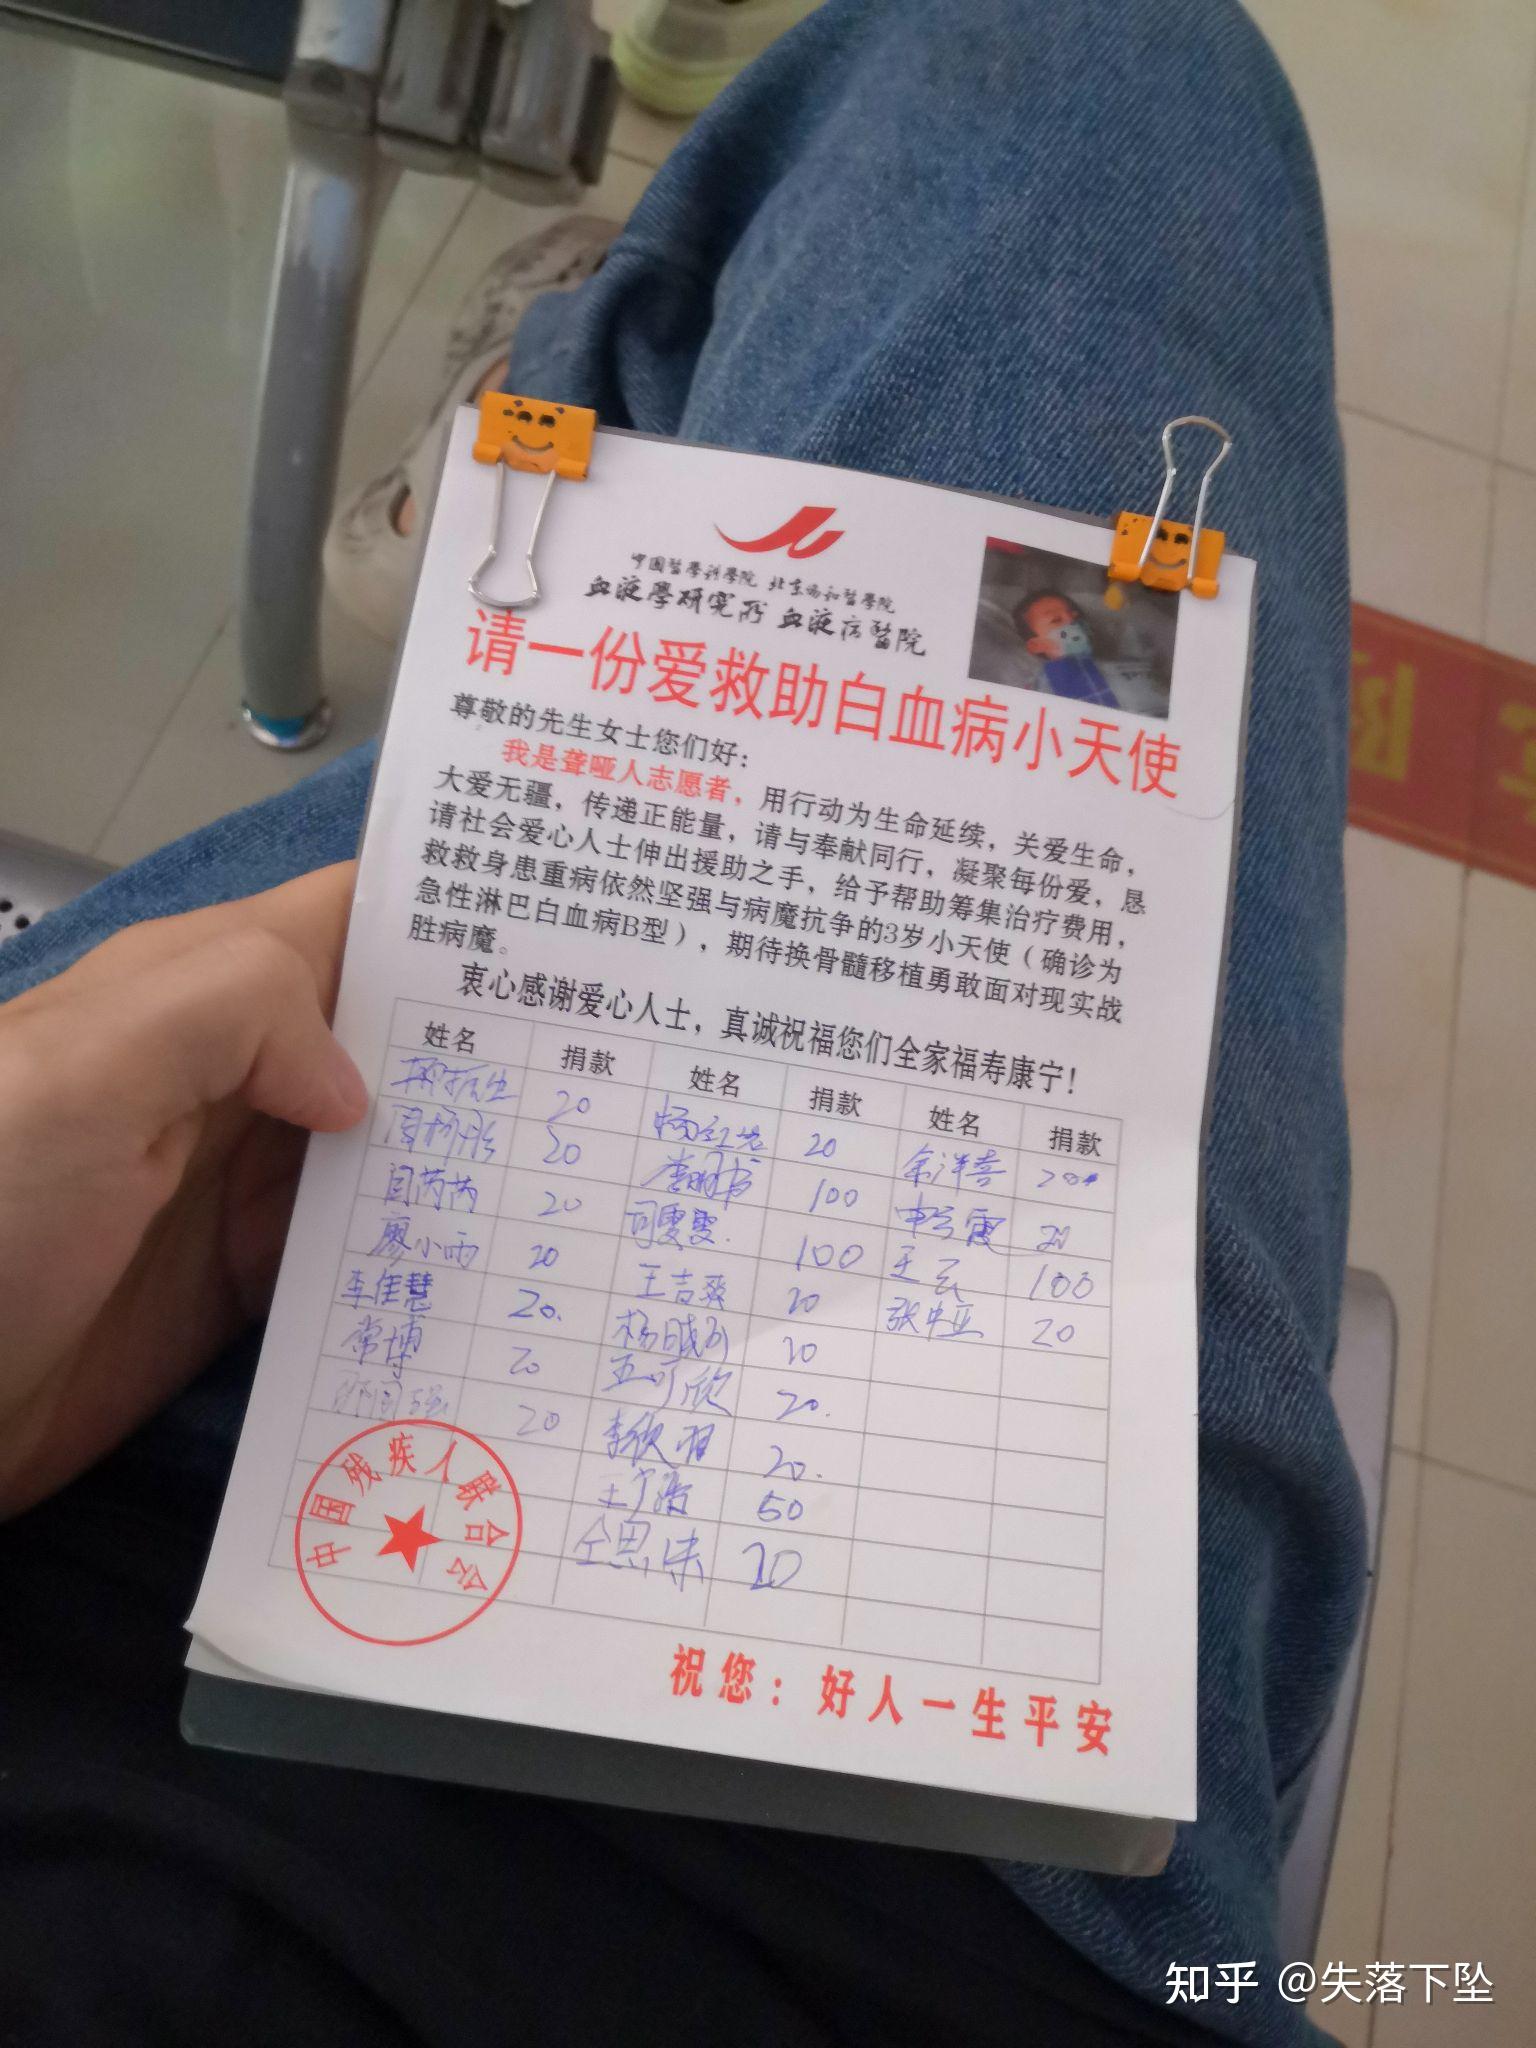 中国医学科学院 北京协和医学院
血液学研究所 血液病医院
请一份爱救助白血病小天使
尊敬的先生女士您们好：
我是聋哑人志愿者，用行动为生命延续，关爱生命，
大爱无疆，传递正能量，请与奉献同行，凝聚每份爱，恳
请社会爱心人士伸出援助之手，给予帮助筹集治疗费用，
救救身患重病依然坚强与病魔抗争的3岁小天使（确诊为
急性淋巴白血病B型），期待换骨髓移植勇敢面对现实战
胜病魔。
衷心感谢爱心人士，真诚祝福您们全家福寿康宁！
姓名 捐款 姓名 捐款 姓名 捐款
20 20
20 100
闫芮芮 20 司雯雯 100 20
廖小雨 20 王吉爽 20 王云 100
李佳慧 20. 20 张中亚 20
常博 20 王可欣 20.
20 李欣羽 20.
王宁 50
20
中国残疾人联合会
祝您：好人一生平安
知乎 @失落下坠